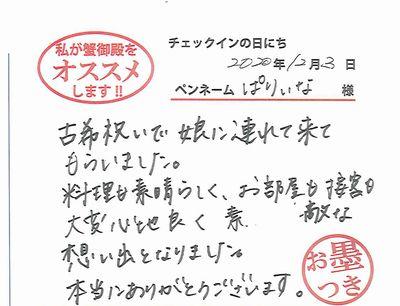 私が蟹御殿を
オススメ
します!!
チェックインの日にち
2020年12月3日
ペンネーム ぱりぃな 様
古希祝いで娘に連れて来て
もらいました。
料理も素晴らしく、お部屋も接客も
大変心地良く素 敵な
想い出となりました。
本当にありがとうございます。
お墨
つき